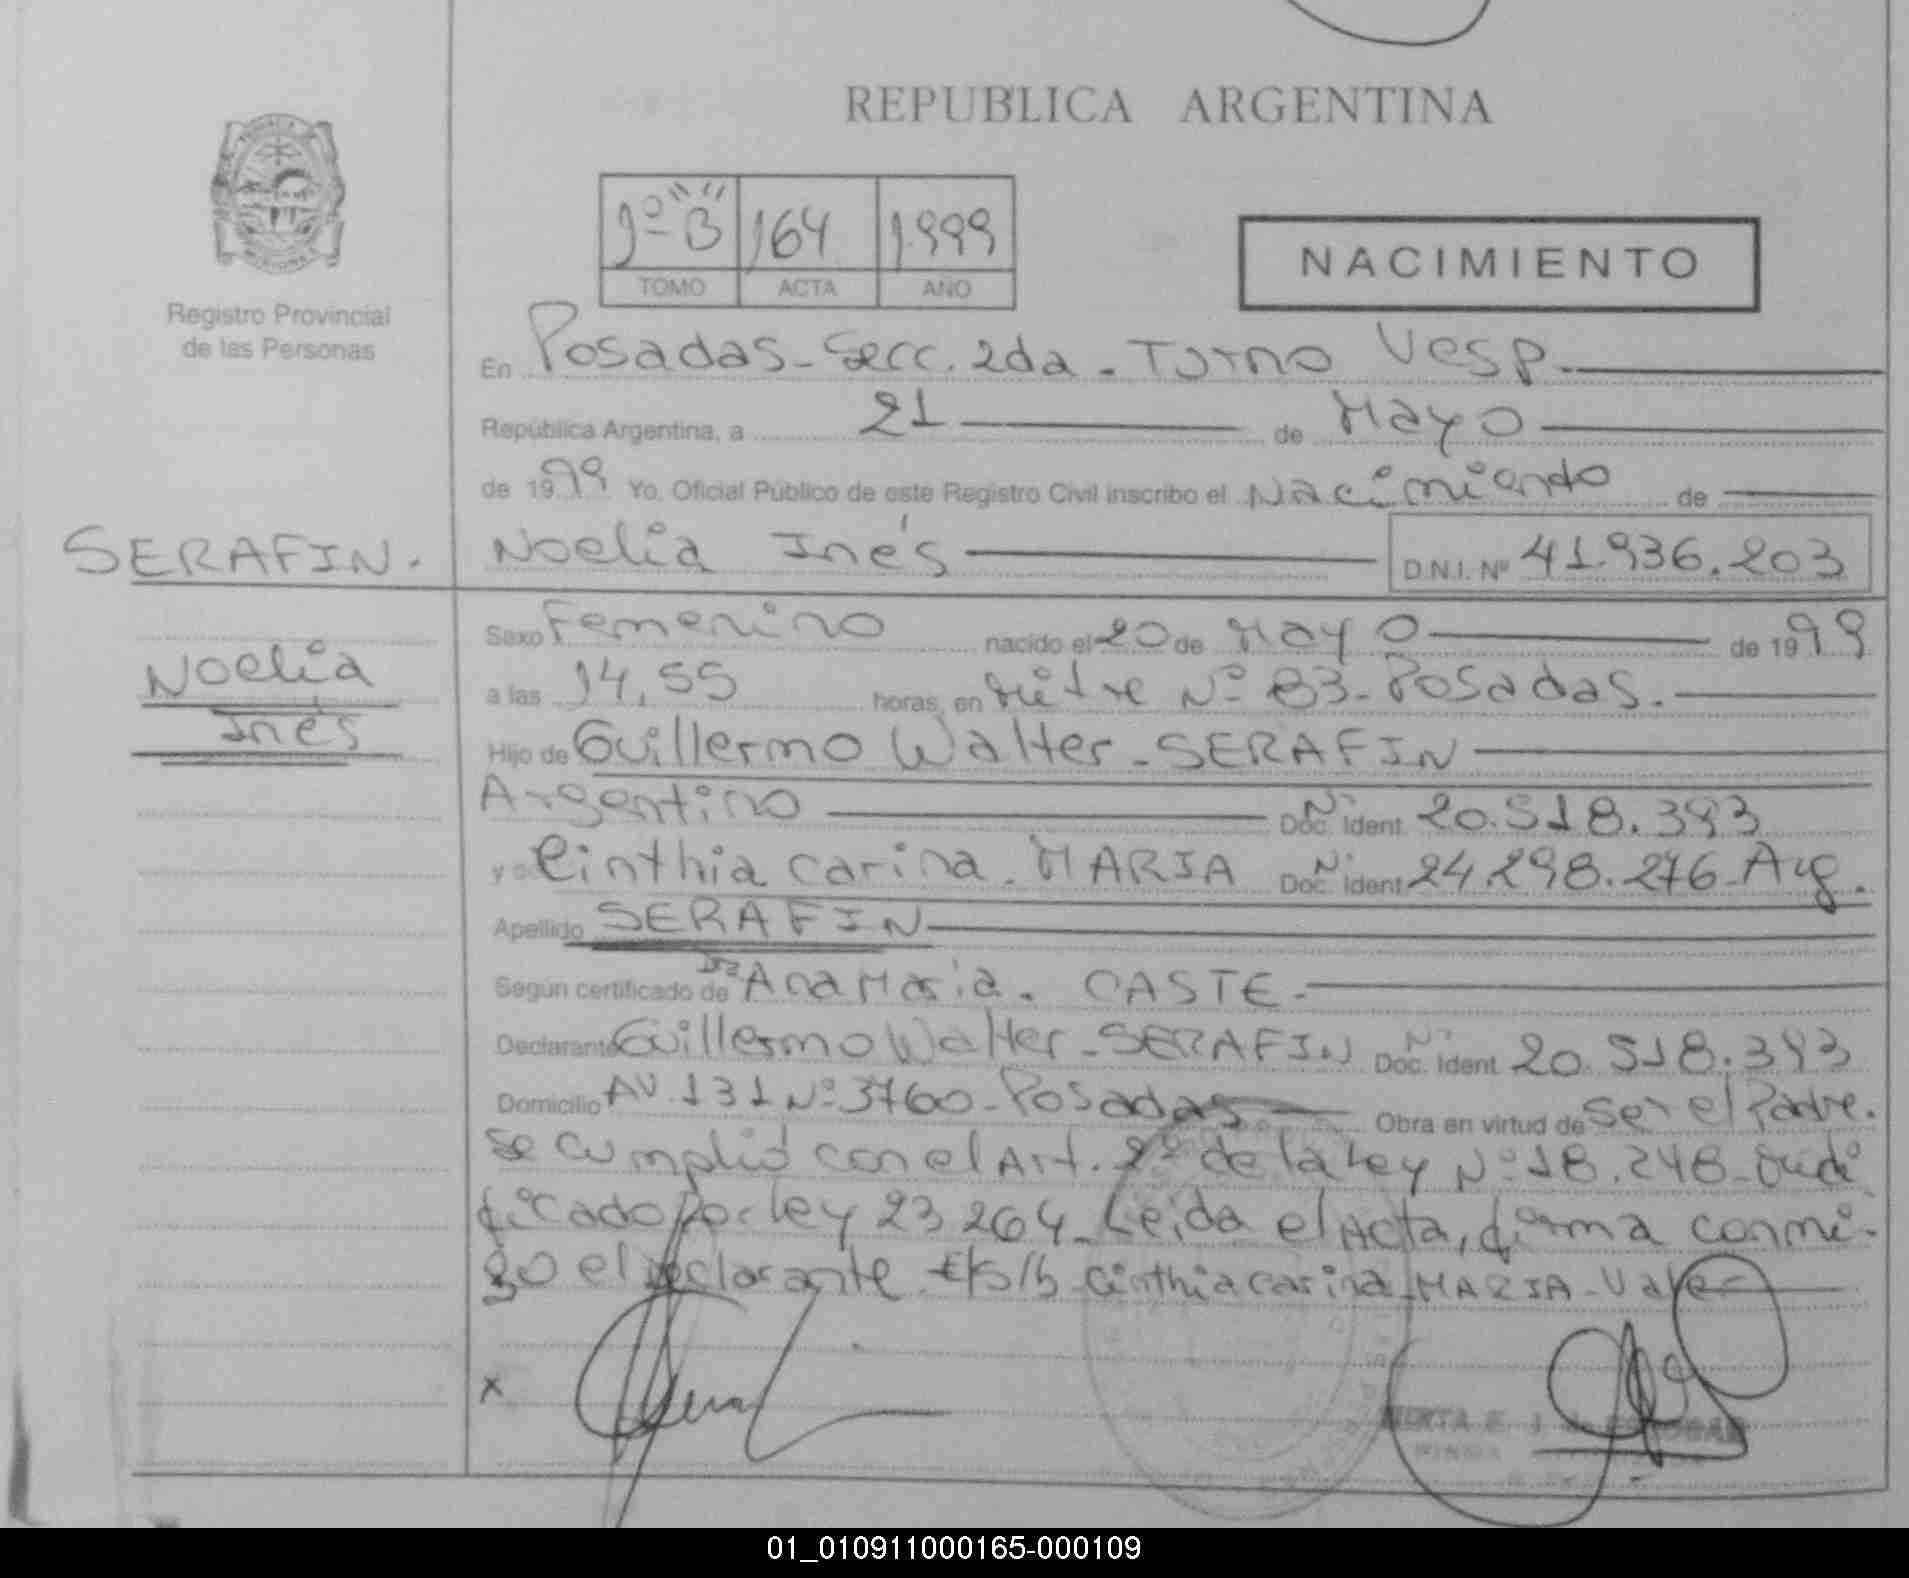 REPUBLICA ARGENTINA
1º "B" 164 1.999
TOMO ACTA AÑO
NACIMIENTO
Registro Provincial
de las Personas
En Posadas - Secc. 2da - Turno Vesp.
República Argentina, a 21 de Mayo
de 1999 Yo, Oficial Público de este Registro Civil inscribo el Nacimiento de
SERAFIN. Noelia Inés D.N.I. Nº 41.936.203
Sexo Femenino nacido el 20 de Mayo de 1999
Noelia
a las 14,55 horas, en Mitre Nº 83 - Posadas.
Inés
Hijo de Guillermo Walter - SERAFIN
Argentino Nº Doc. Ident. 20.518.393
y de Cinthia Carina - MARIA Nº Doc. Ident. 24.298.276 - Arg.
Apellido SERAFIN
Según certificado de Dra Ana Maria. CASTE.
Declarante Guillermo Walter - SERAFIN Nº Doc. Ident. 20.518.393
Domicilio AV. 131 Nº 3760 - Posadas Obra en virtud de Ser el Padre.
Se cumplió con el Art. 2º de la Ley Nº 18.248 - Modi
ficado por ley 23264 - Leida el Acta, firma conmi-
go el declarante. E/S/b - Cinthia Carina - MARIA - Vale
x
MIRTA E. J. de ESCOBAR
01_010911000165-000109